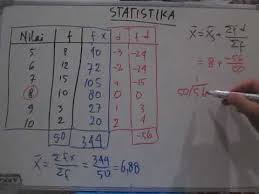 STATISTIKA
Nilai f fx d fd
5 8 40 -3 -24
6 12 72 -2 -24
7 15 105 -1 -15
8 10 80 0 0
9 3 27 1 3
10 2 20 2 4
50 344 -56
x̄ = Σfx/Σf = 344/50 = 6,88
x̄ = x̄s + Σfd/Σf
= 8 + -56/50
1
50/56